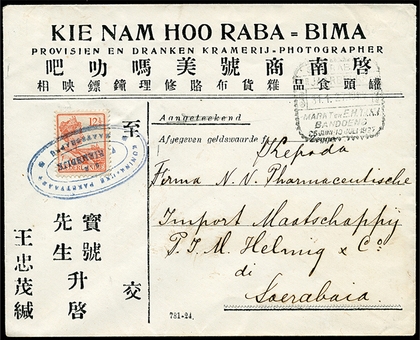 KIE NAM HOO RABA = BIMA
PROVISIEN EN DRANKEN KRAMERIJ-PHOTOGRAPHER
吧叻嗎美號商南啓
相映鏢鐘理修賂布貨雜品食頭罐
MARKT en E.M.T.N.I
BANDOENG
25 JUNI-10 JULI 1927
12½
KONINKLIJKE PAKETVAART
至
Aangeteekend
Afgegeven geldswaarde
Kepada
Firma N. V. Pharmaceutische
Import Maatschappij
P. I. M. Helmig & Co
di
Soerabaia.
交
寶號
先生升啓
王忠茂緘
781-24.